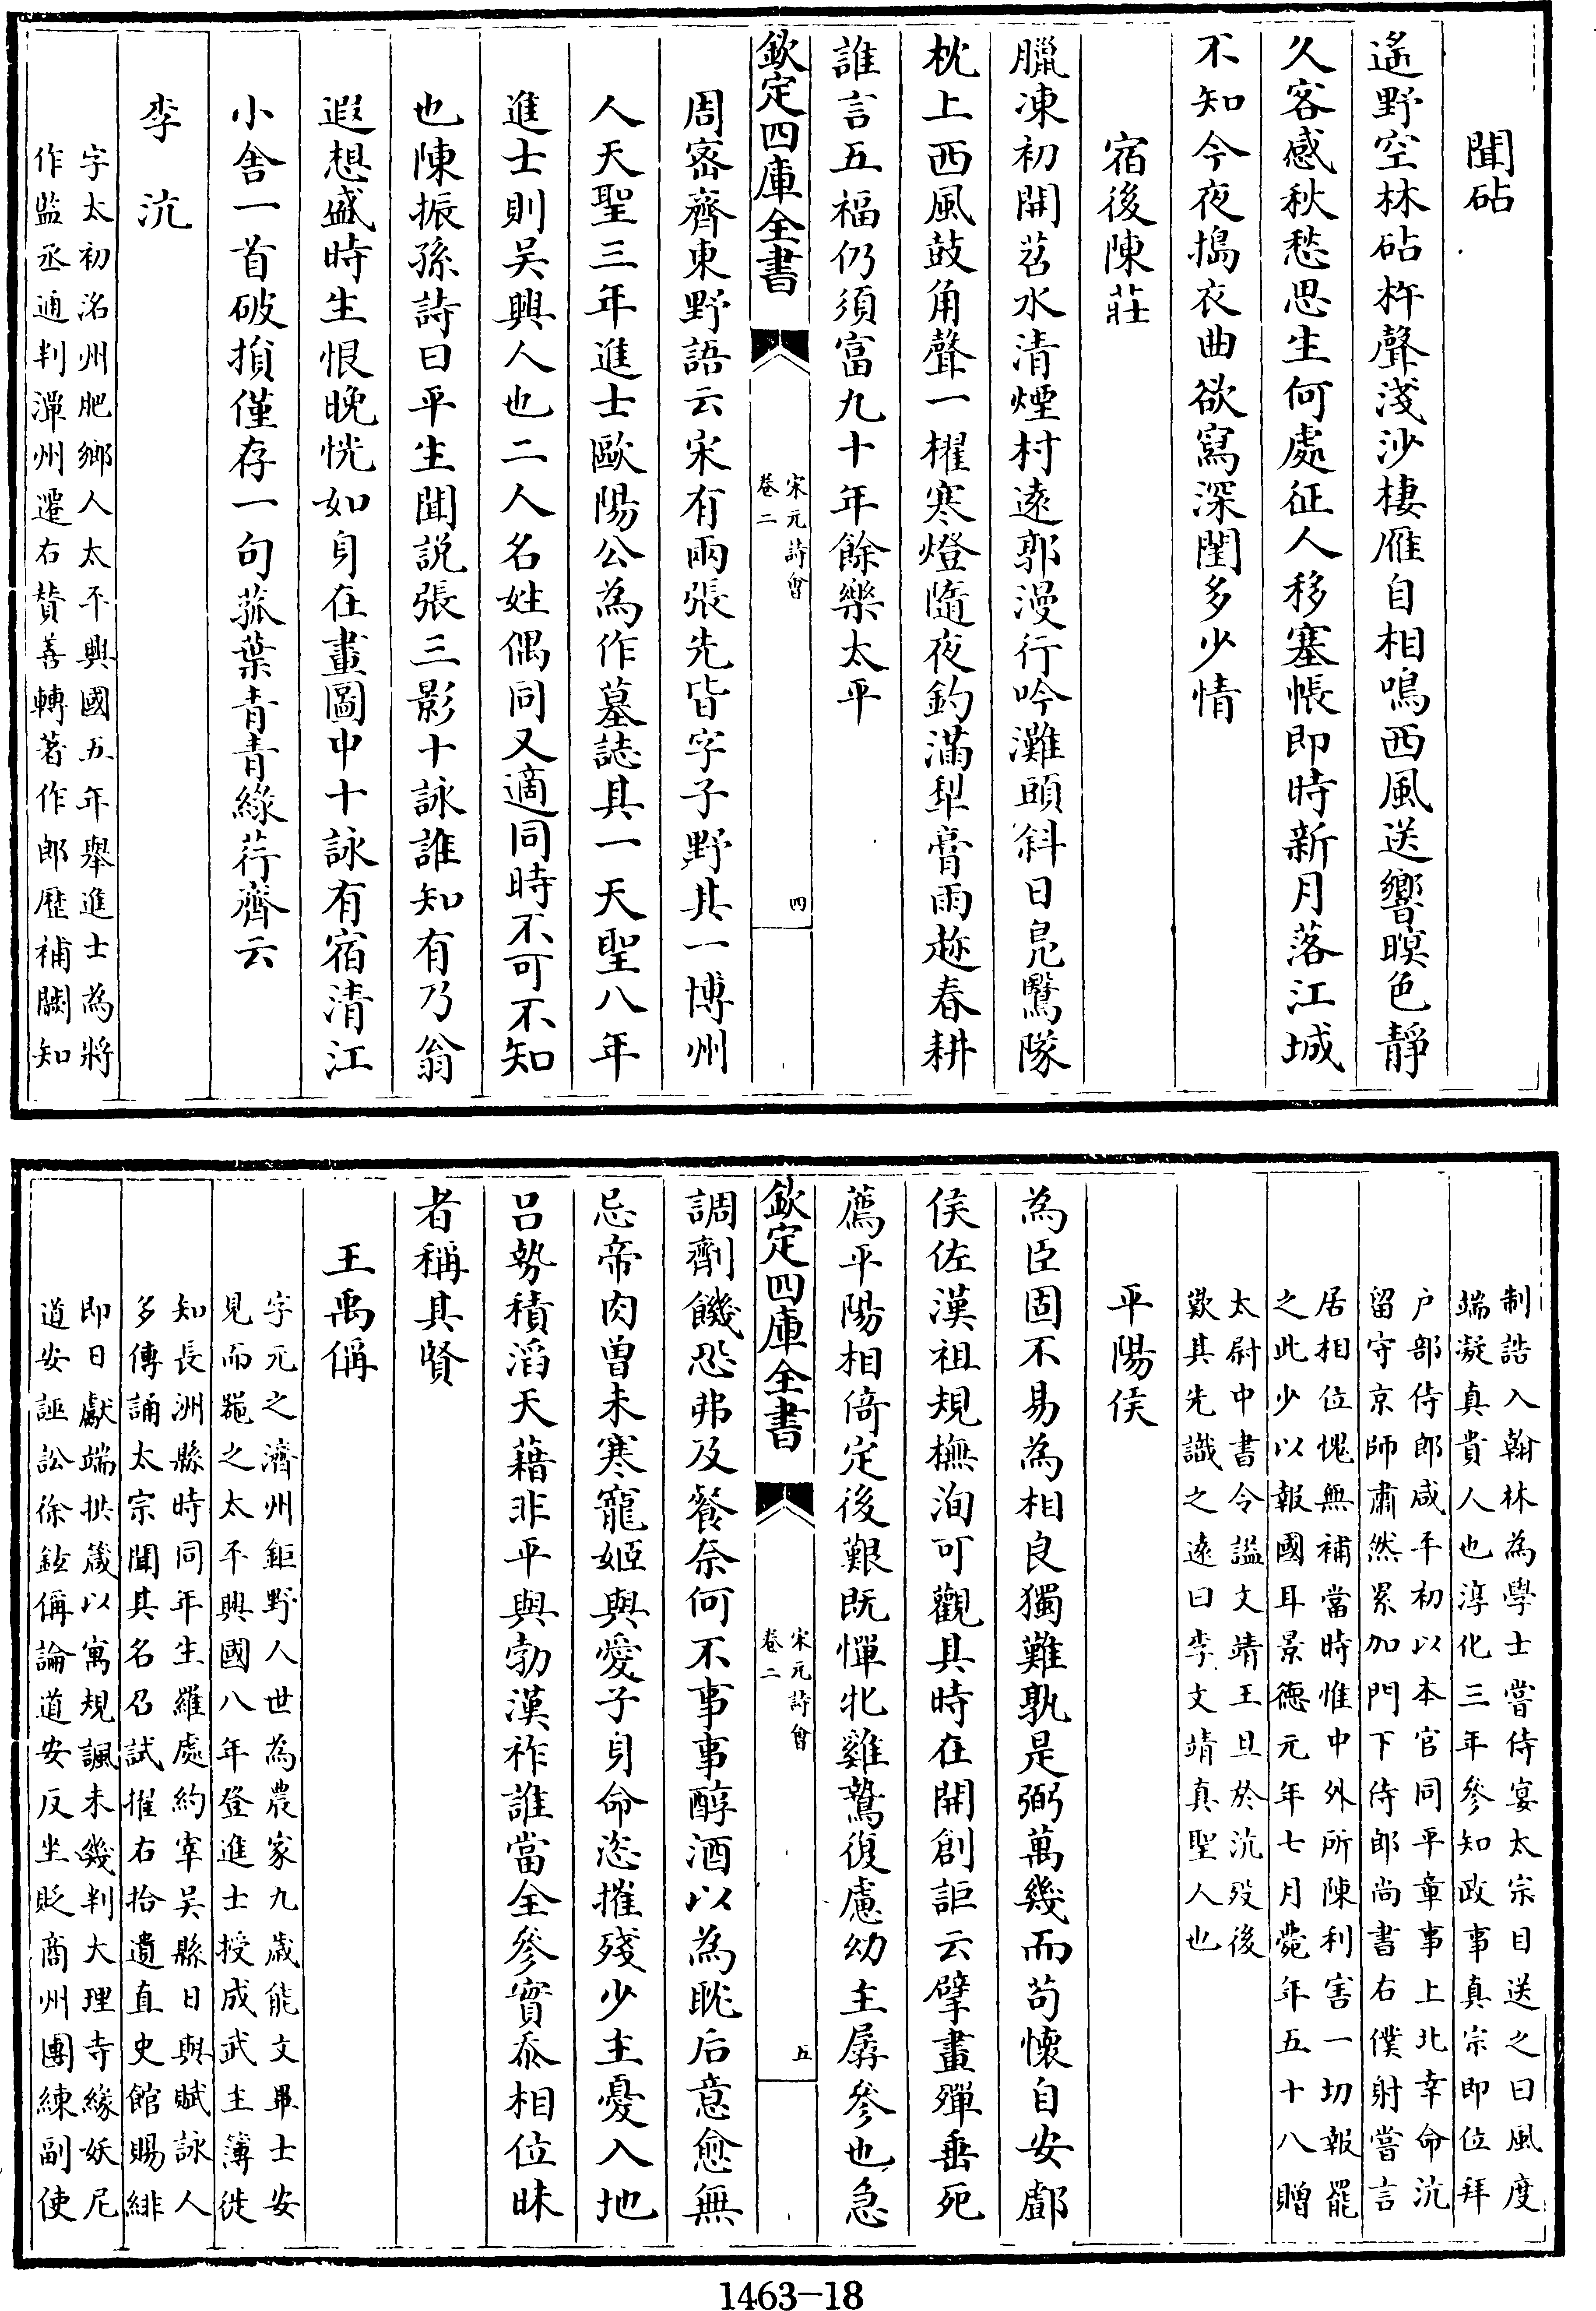 聞砧
遙野空林砧杵聲淺沙棲雁自相鳴西風送響暝色靜
久客感秋愁思生何處征人移塞帳即時新月落江城
不知今夜搗衣曲欲寫深閨多少情
宿後陳莊
臘凍初開苕水清煙村遠郭漫行吟灘頭斜日鳧鷖隊
枕上西風鼓角聲一櫂寒燈隨夜釣滿犁膏雨趂春耕
誰言五福仍須富九十年餘樂太平
欽定四庫全書
宋元詩會
卷二
四
周密齊東野語云宋有兩張先皆字子野其一博州
人天聖三年進士歐陽公為作墓誌其一天聖八年
進士則吴興人也二人名姓偶同又適同時不可不知
也陳振孫詩曰平生聞説張三影十詠誰知有乃翁
遐想盛時生恨晚恍如身在畫圖中十詠有宿清江
小舍一首破損僅存一句菰葉青青綠荇齊云
李沆
字太初洺州肥鄉人太平興國五年舉進士為將
作監丞通判潭州遷右贊善轉著作郎歷補闕知
制誥入翰林為學士嘗侍宴太宗目送之曰風度
端凝真貴人也淳化三年參知政事真宗即位拜
户部侍郎咸平初以本官同平章事上北幸命沆
留守京師肅然累加門下侍郎尚書右僕射嘗言
居相位愧無補當時惟中外所陳利害一切報罷
之此少以報國耳景德元年七月薨年五十八贈
太尉中書令謚文靖王旦於沆殁後
歎其先識之遠曰李文靖真聖人也
平陽侯
為臣固不易為相良獨難孰是弼萬幾而茍懷自安酇
侯佐漢祖規橅洵可觀其時在開創詎云擘畫殫垂死
薦平陽相倚定後艱既憚牝雞鷙復慮幼主孱參也急
欽定四庫全書
宋元詩會
卷二
五
調劑饑恐弗及餐奈何不事事醇酒以為眈后意愈無
忌帝肉曽未寒寵姬與愛子身命恣摧殘少主憂入地
吕勢積滔天藉非平與勃漢祚誰當全參實忝相位昧
者稱其賢
王禹偁
字元之濟州鉅野人世為農家九歲能文畢士安
見而器之太平興國八年登進士授成武主簿徙
知長洲縣時同年生羅處約宰吴縣日與賦詠人
多傳誦太宗聞其名召試擢右拾遺直史館賜緋
即日獻端拱箴以寓規諷未幾判大理寺緣妖尼
道安誣訟徐鉉偁論道安反坐貶商州團練副使
1463-18